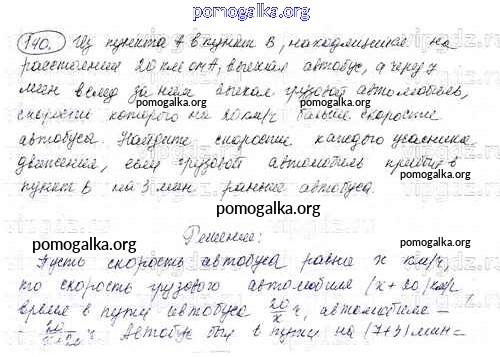 pomogalka.org
140. Из пункта А в пункт В, находящийся на
расстоянии 20 км от А, выехал автобус, а через 7
мин вслед за ним выехал грузовой автомобиль,
скорость которого на 20 км/ч больше скорости
автобуса. Найдите скорости каждого участника
движения, если грузовой автомобиль прибыл в
пункт В на 3 мин раньше автобуса.
pomogalka.org
Решение:
pomogalka.org pomogalka.org
Пусть скорость автобуса равна x км/ч,
то скорость грузового автомобиля (x+20) км/ч
время в пути автобуса 20/x ч, автомобиля -
- 20/x+20 ч. Автобус был в пути на (7+3) мин =